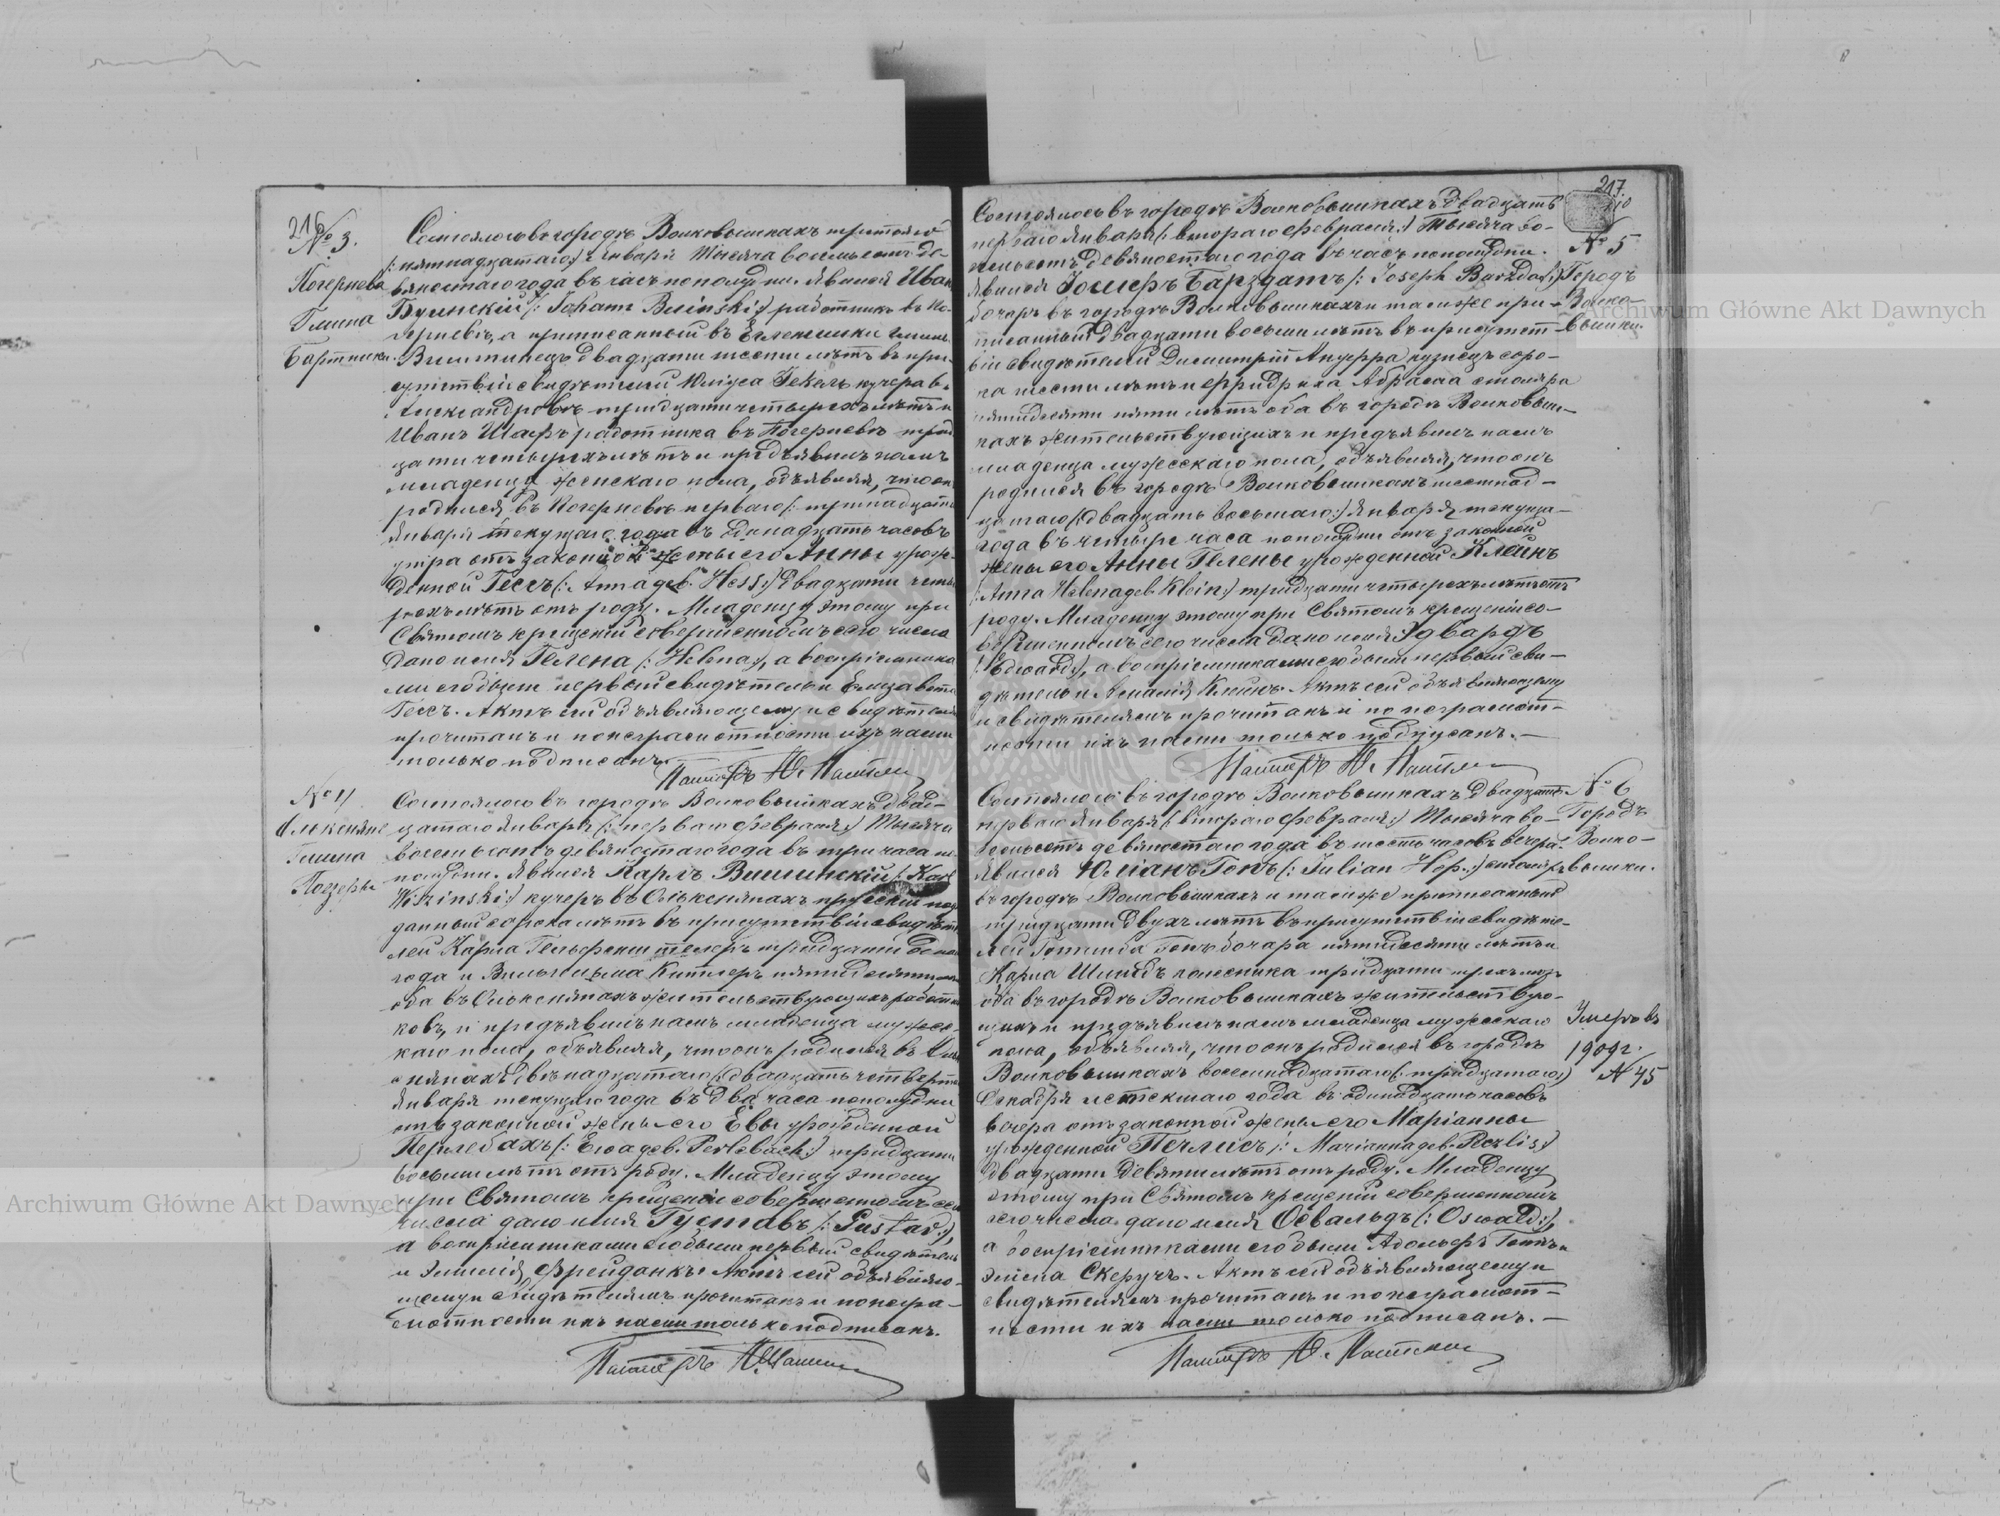 216
№ 3.
Погернева
Гмина
Бартники.
Состоялось въ городѣ Волковышкахъ третьяго
(: пятнадцатаго :) Января Тысяча восемьсотъ де-
вяностаго года въ часъ пополудни. Явился Иванъ
Бузинскій (: Johann Businski :) работникъ въ По-
герневѣ, а приписанный въ гмины
двадцати шести лѣтъ въ при-
сутствіи свидѣтелей Юліуса Гекель кучера въ
Александровѣ тридцати четырехъ лѣтъ и
Иванъ Шафъ работника въ Погерневѣ трид-
цати четырехъ лѣтъ и предъявилъ намъ
младенца женскаго пола, объявляя, что онъ
родился въ Погерневѣ перваго (: тринадцатаго
Января текущаго года въ одинадцать часовъ
утра отъ законной жены его Анны урож-
денной Гессъ (: Anna geb. Hess :) двадцати четы-
рехъ лѣтъ отъ роду. Младенцу этому при
Святомъ крещеніи совершенномъ сего числа
дано имя Гелена (: Helena :), а воспріемника-
ми его были первый свидѣтель и Елизавета
Гессъ. Актъ сей объявляющему и свидѣтелямъ
прочитанъ и по неграмотности ихъ нами
только подписанъ.
Пасторъ
№ 4
Олькеняне
Гмина
Поезеры
Состоялось въ городѣ Волковышкахъ двад-
цатаго Января (: перваго Февраля :) Тысяча
восемьсотъ девяностаго года въ три часа по
полудни. Явился Карлъ Вишинскій (: Karl
Wiszinski :) кучеръ въ Олькенянахъ прусскій под-
данный сорока лѣтъ въ присутствіи свидѣте-
лей Карла Гельфенш телеръ тридцати одного
года и Вильгельма Китлеръ пятидесяти лѣтъ
оба въ Олькенянахъ жительствующихъ работни-
ковъ, и предъявилъ намъ младенца мужес-
каго пола, объявляя, что онъ родился въ Оль-
кенянахъ двѣнадцатаго (: двадцать четвертаго
Января текущаго года въ два часа пополудни
отъ законной жены его Евы урожденной
Перлебахъ (: Ewa geb. Perlebach :) тридцати
восьми лѣтъ отъ роду. Младенцу этому
при Святомъ крещеніи совершенномъ сего
числа дано имя Густавъ (: Gustav :),
а воспріемниками его были первый свидѣтель
и Эмилія Фрейданкъ. Актъ сей объявляю-
щему и свидѣтелямъ прочитанъ и по негра-
мотности ихъ нами только подписанъ.
Пасторъ
217
Состоялось въ городѣ Волковышкахъ двадцать
перваго Января (: втораго Февраля :) Тысяча во-
семьсотъ девяностаго года въ часъ пополудни.
Явился Іосифъ Барздатъ (: Joseph Barzdat :)
бочаръ въ городѣ Волковышкахъ и тамъ же при-
писанный двадцати восьми лѣтъ въ присутст-
віи свидѣтелей Димитрій Ануфра кузнецъ соро-
ка шести лѣтъ и Фридриха Абрамъ столяра
пятидесяти пяти лѣтъ оба въ городѣ Волковыш-
кахъ жительствующихъ и предъявилъ намъ
младенца мужескаго пола, объявляя, что онъ
родился въ городѣ Волковышкахъ шестнад-
цатаго (: двадцать восьмаго :) Января текуща-
года въ четыре часа пополудни отъ законной
жены его Анны Гелены урожденной Клейнъ
(: Anna Helena geb. Klein :) тридцати четырехъ лѣтъ отъ
роду. Младенцу этому при Святомъ крещеніи со-
вершенномъ сего числа дано имя Эдвардъ
(: Edward :), а воспріемниками его были первый сви-
дѣтель и Амалія Клейнъ. Актъ сей объявляющему
и свидѣтелямъ прочитанъ и по неграмот-
ности ихъ нами только подписанъ.—
Пасторъ
№ 5
Городъ
Волко-
вышки.
Состоялось въ городѣ Волковышкахъ двадцать
перваго Января (: втораго Февраля :) Тысяча во-
семьсотъ девяностаго года въ шесть часовъ вечера.
Явился Юліанъ Гопъ (: Julian Hop :) столяръ
въ городѣ Волковышкахъ и тамъ же приписанный
тридцати двухъ лѣтъ въ присутствіи свидѣте-
лей Готлиба Гопъ бочара пятидесяти лѣтъ и
Карла Шмидъ колесника тридцати трехъ лѣтъ
оба въ городѣ Волковышкахъ жительствую-
щихъ и предъявилъ намъ младенца мужескаго
пола, объявляя, что онъ родился въ городѣ
Волковышкахъ восемнадцатаго (: тридцатаго :)
Декабря истекшаго года въ одинадцать часовъ
вечера отъ законной жены его Маріанны
урожденной Перлисъ (: Marianna geb. Perlis :)
двадцати девяти лѣтъ отъ роду. Младенцу
этому при Святомъ крещеніи совершенномъ
сего числа дано имя Освальдъ (: Oswald :),
а воспріемниками его были Адольфъ Гопъ и
Эмма Скеручъ. Актъ сей объявляющему и
свидѣтелямъ прочитанъ и по неграмот-
ности ихъ нами только подписанъ.—
Пасторъ
№ 6
Городъ
Волко-
вышки.
Умеръ въ
1909 г.
№ 45
Archiwum Główne Akt Dawnych
Archiwum Główne Akt Dawnych